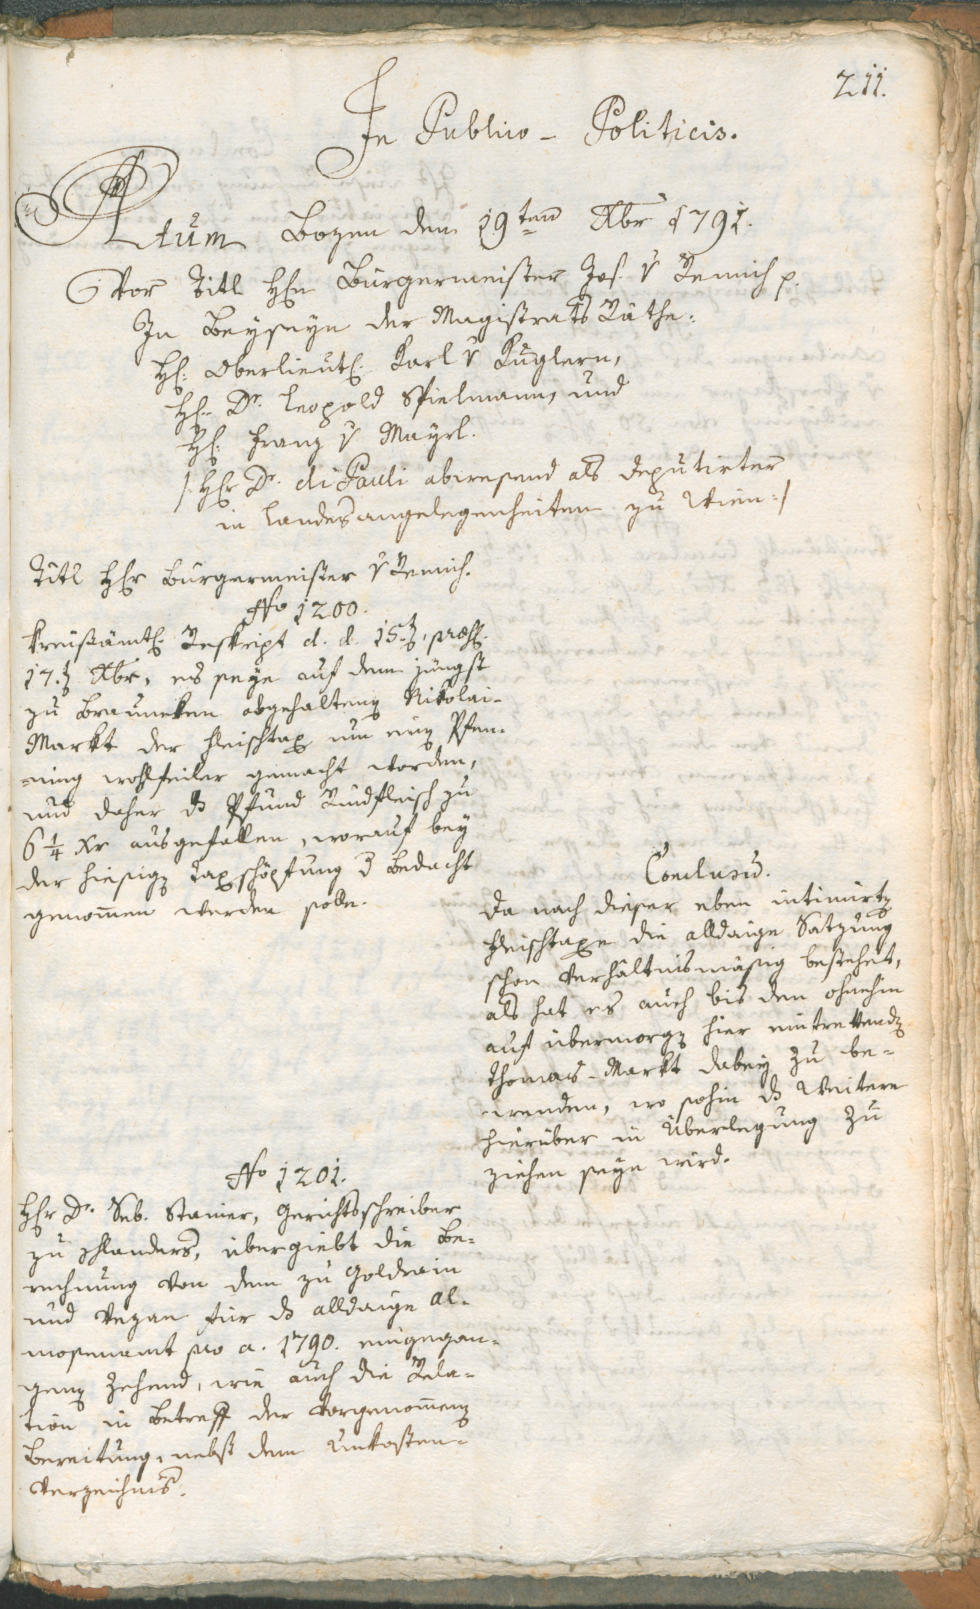 211.
In Publico - Politicis.
Actum Bozen den 19ten Xbr 1791.
Vor Titl Hrn Bürgermeister Jos. v Remich p.
In Beyseyn der Magistrats Räthe:
Hl: Oberlieutl. Karl v Kuglern,
Hl. Dr. Leopold Spielmann, und
Hl. Franz v Mayrl.
/: Hr Dr. di Pauli abwesend als Deputirter
in Landesangelegenheiten zu Wien :/
Titl Hr Bürgermeister v Remich.
No 1200.
Kreisämtl. Reskript d. d. 15t, præs.
17.t Xbr, es seye auf dem jüngst
zu Brauneken abgehaltenen Nikolai-
Markt der Fleischtax um einen Pfen-
-ning wohlfeiler gemacht worden,
und daher ds Pfund Rindfleisch zu
6 1/4 Xr ausgefallen, worauf bey
der hiesigen Taxschöpfung d Bedacht
genommen werden solle.
Conclusum.
Da nach dieser eben intimirten
Fleischtaxe die alldaige Satzung
schon verhältnismäsig bestehet,
als hat es auch bis den ohnehin
auf übermorgen hier eintrettenden
Thomas-Markt dabey zu be-
wenden, wo sohin ds Weitere
hierüber in Überlegung zu
ziehen seyn wird.
No 1201.
Hr Dr. Seb. Stainer, Gerichtsschreiber
zu Schlanders, übergiebt die Be-
rechnung von dem zu Goldrain
und Vezan für ds alldaige Al-
mosenamt pro a. 1790. eingegan-
genen Zehend, wie auch die Rela-
tion in Betreff der vorgenommenen
Bereitung, nebst dem Unkosten-
Verzeichnis.